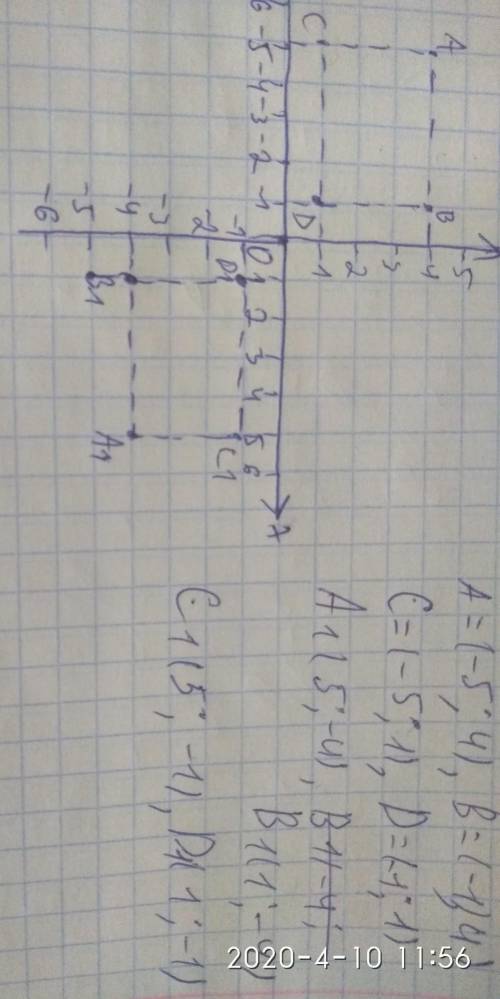 A C
-6 -5 -4 -3 -2 -1 0 1 2 3 4 5 6 x
B D
5
4
3
2
1
-1
-2
-3
-4
-5
-6
D1 C1
B1 A1
A=(-5; 4), B=(-1; 4)
C=(-5; 1), D=(-1; 1)
A1(5; -4), B1(-4;
B1(1; -4)
C1(5; -1), D1(1; -1)
2020-4-10 11:56